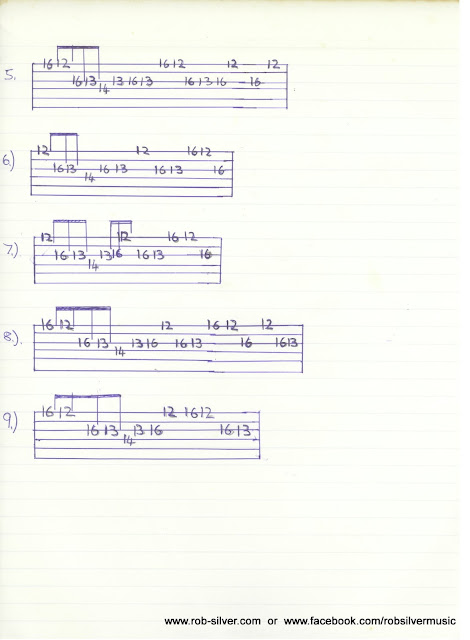 5.) 16 12 16 12 12 12
16 13 13 16 13 16 13 16 16
14
6.) 12 12 16 12
16 13 16 13 16 13 16
14
7.) 12 12 16 12
16 13 13 16 16 13 16
14
8.) 16 12 12 16 12 12
16 13 13 16 16 13 16 16 13
14
9.) 16 12 12 16 12
16 13 13 16 16 13
14
www.rob-silver.com or www.facebook.com/robsilvermusic